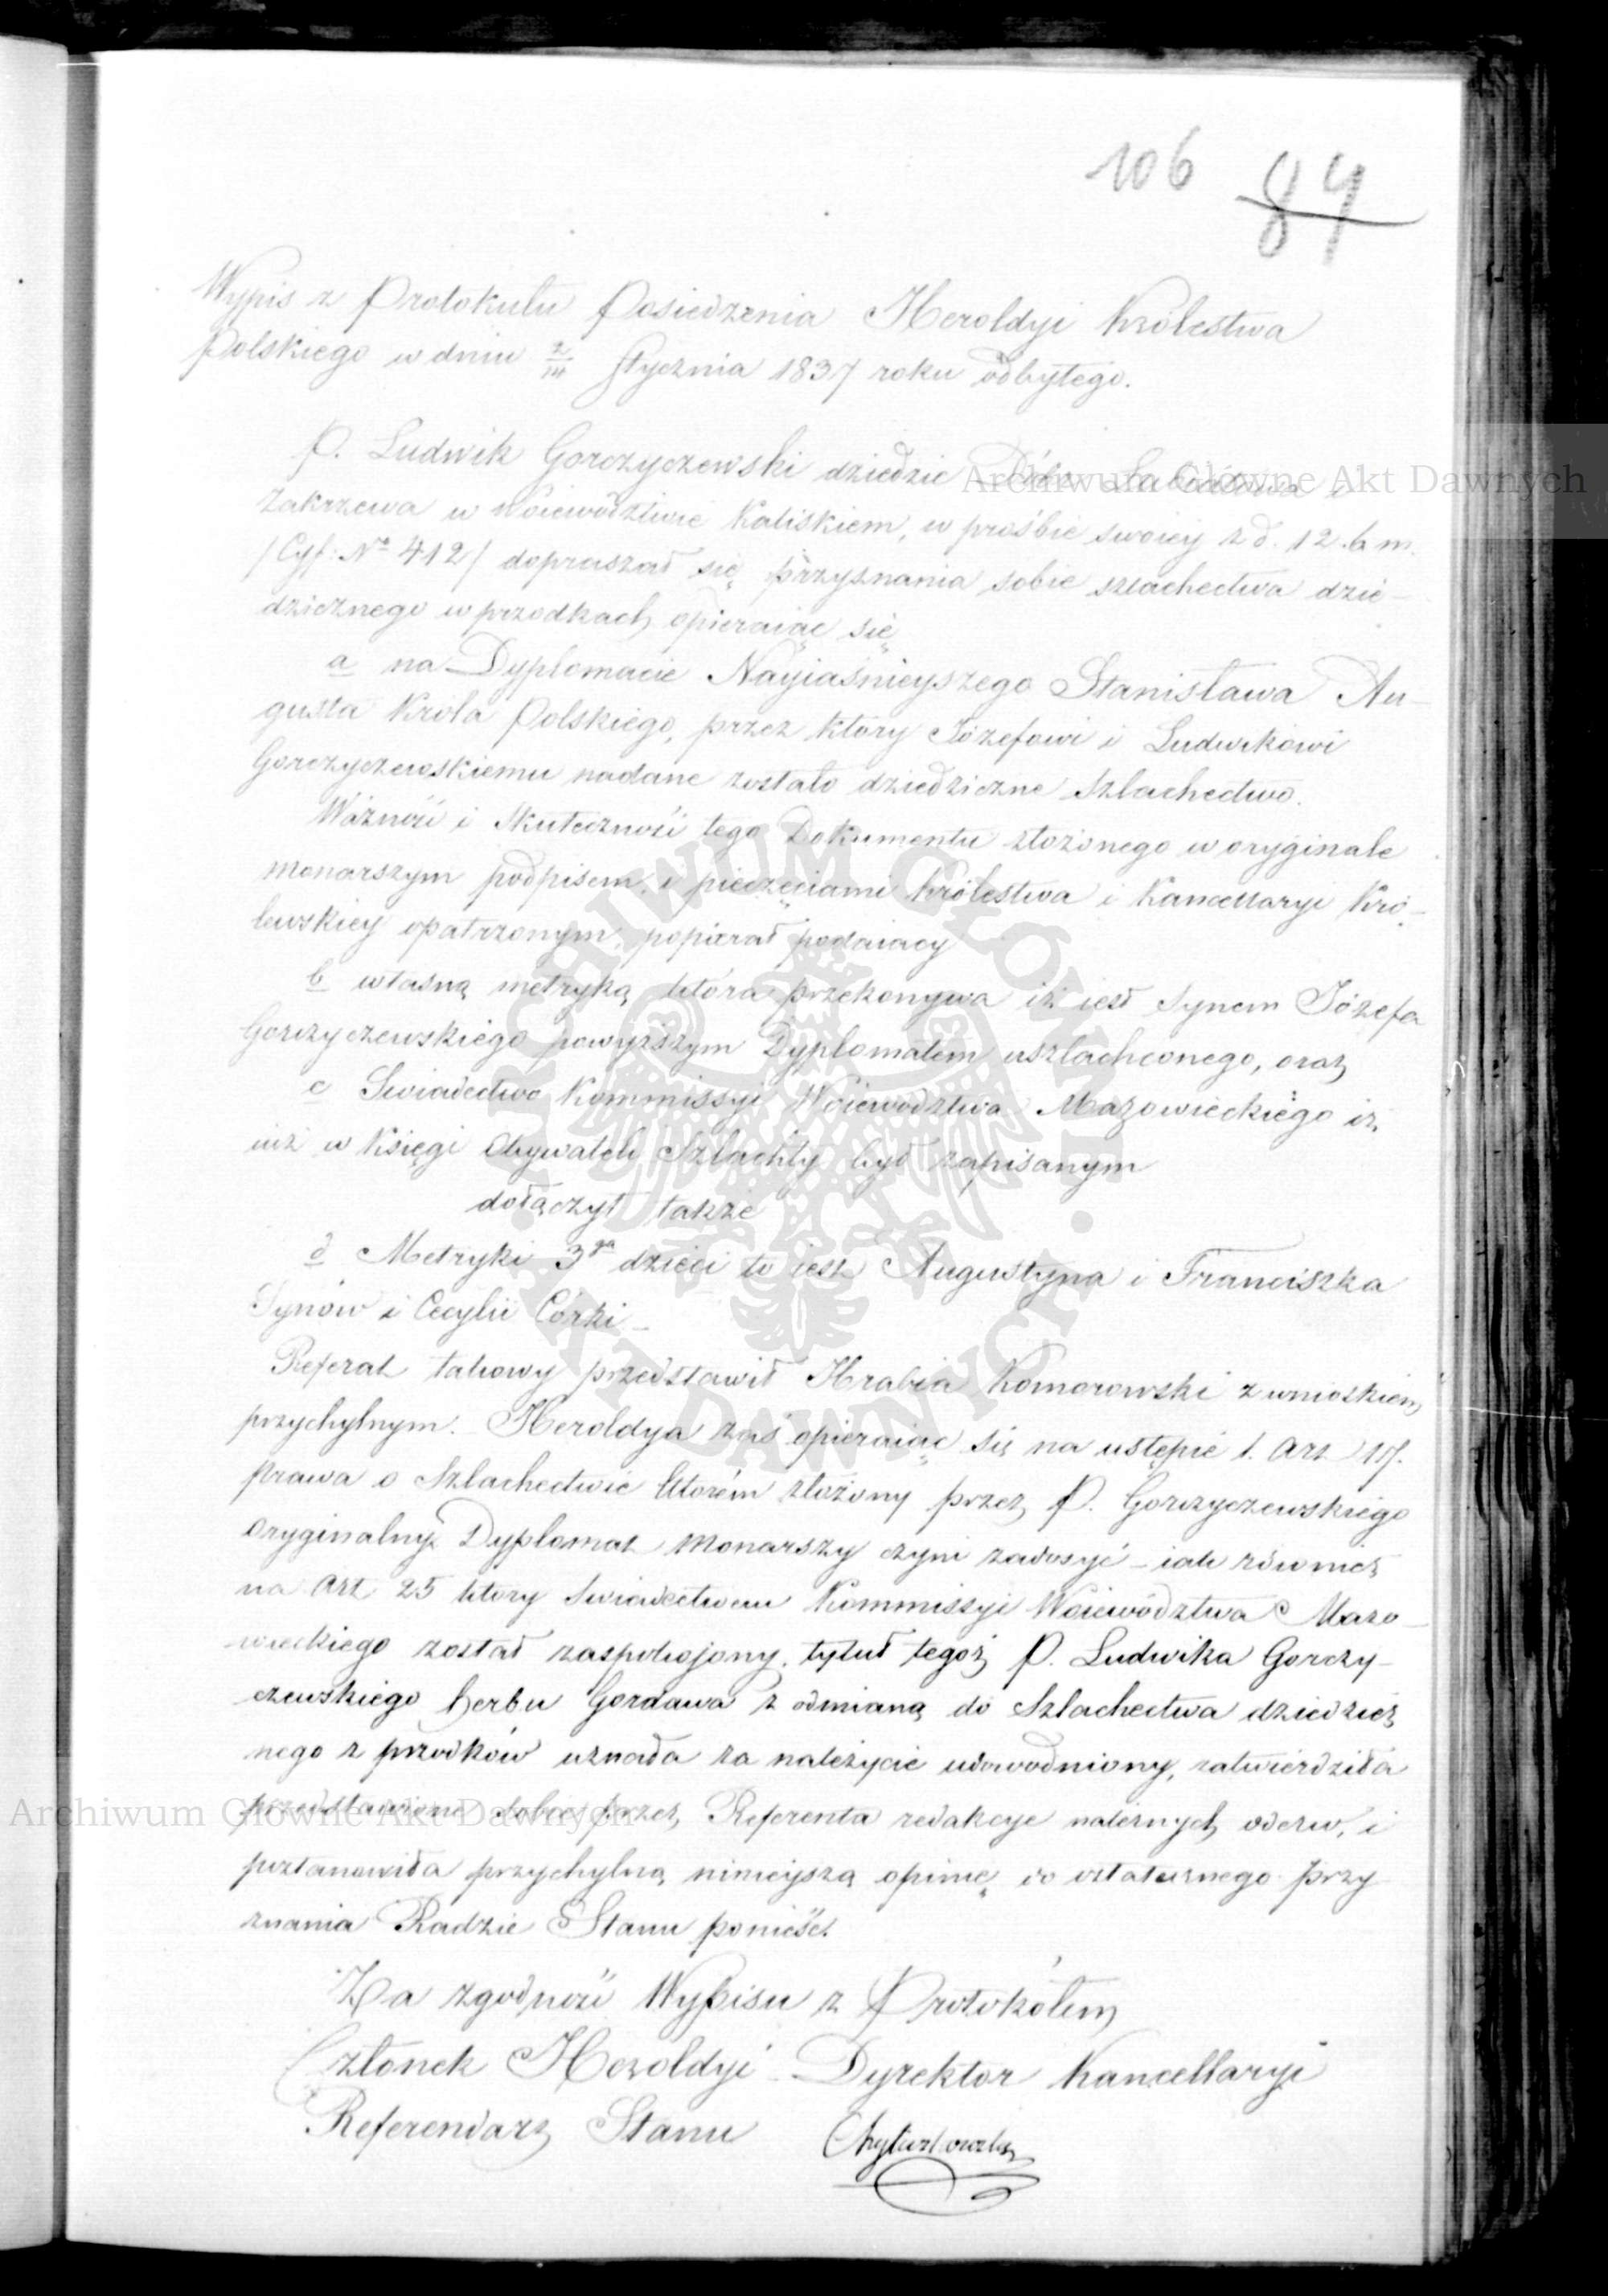 106 84
Wypis z Protokułu Posiedzenia Heroldyi Królestwa
Polskiego w dniu Stycznia 1837 roku odbytego.
P. Ludwik Gorczyczewski dziedzic Dóbr
Zakrzewa w Woiewództwie Kaliskiem, w prośbie swoiey z d. 12. b. m.
/Cyf: No 412/ dopraszał się przyznania sobie szlachectwa dzie-
dzicznego w przodkach, opieraiąc się
a na Dyplomacie Nayiaśnieyszego Stanisława Au-
gusta Króla Polskiego, przez który Józefowi i Ludwikowi
Gorczyczewskiemu nadane zostało dziedziczne Szlachectwo.
Ważność i skuteczność tego Dokumentu złożonego w oryginale
monarszym podpisem i pieczęciami Królestwa i Kancellaryi Kró-
lewskiey opatrzonym, popierał podaiący
b własną metryką która przekonywa iż iest synem Józefa
Gorczyczewskiego powyższym Dyplomatem uszlachconego, oraz
c Swiadectwo Kommissyi Woiewództwa Mazowieckiego iż
iuż w Księgi Obywateli Szlachty był zapisanym
dołączył także
d Metryki 3ga dzieci to iest Augustyna i Franciszka
Synów i Cecylii Córki -
Referat takowy przedstawił Hrabia Komorowski z wnioskiem
przychylnym. Heroldya zaś opieraiąc się na ustępie 1. Art 17.
prawa o Szlachectwie którém złożony przez P. Gorczyczewskiego
oryginalny Dyplomat Monarszy czyni zadosyć - iak również
na Art 25 który świadectwem Kommissyi Woiewództwa Mazo-
wieckiego został zaspokojony, tytuł tegoż P. Ludwika Gorczy-
czewskiego herbu Gordawa z odmianą do Szlachectwa dziedzicz
nego z przodków uznała za należycie udowodniony, zatwierdziła
przedstawione sobie przez Referenta redakcye należnych odezw, i
postanowiła przychylną ninieyszą opinię do ostatecznego przy
znania Radzie Stanu ponieść.
Za zgodność Wypisu z Protokółem
Członek Heroldyi - Dyrektor Kancellaryi
Referendarz Stanu
Archiwum Główne Akt Dawnych
Archiwum Główne Akt Dawnych
ARCHIWUM GŁÓWNE AKT DAWNYCH